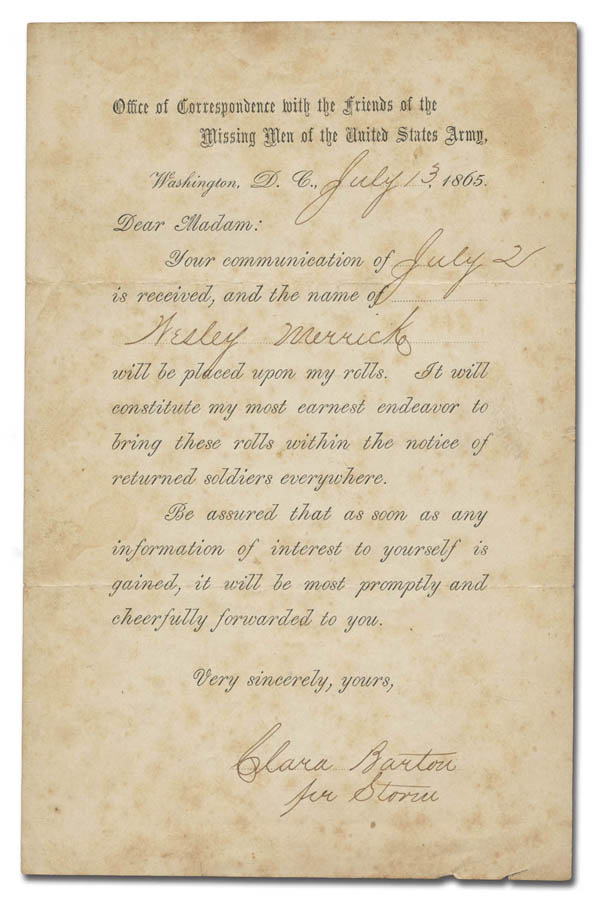 Office of Correspondence with the Friends of the
Missing Men of the United States Army,
Washington, D. C., July 13, 1865.
Dear Madam:
Your communication of July 2
is received, and the name of
Wesley Merrick
will be placed upon my rolls. It will
constitute my most earnest endeavor to
bring these rolls within the notice of
returned soldiers everywhere.
Be assured that as soon as any
information of interest to yourself is
gained, it will be most promptly and
cheerfully forwarded to you.
Very sincerely, yours,
Clara Barton
per Storm